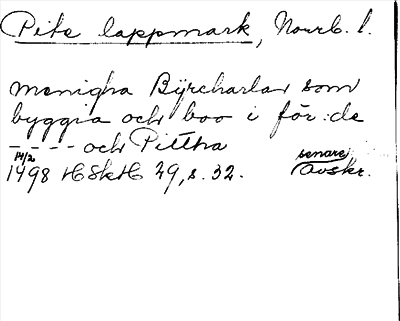 Pite lappmark, Norrb. l.
menigha Byrcharlar som
byggia och boo i för:de
---- och Pittha
14/2 1498 HSkH 29, s. 32. senare avskr.